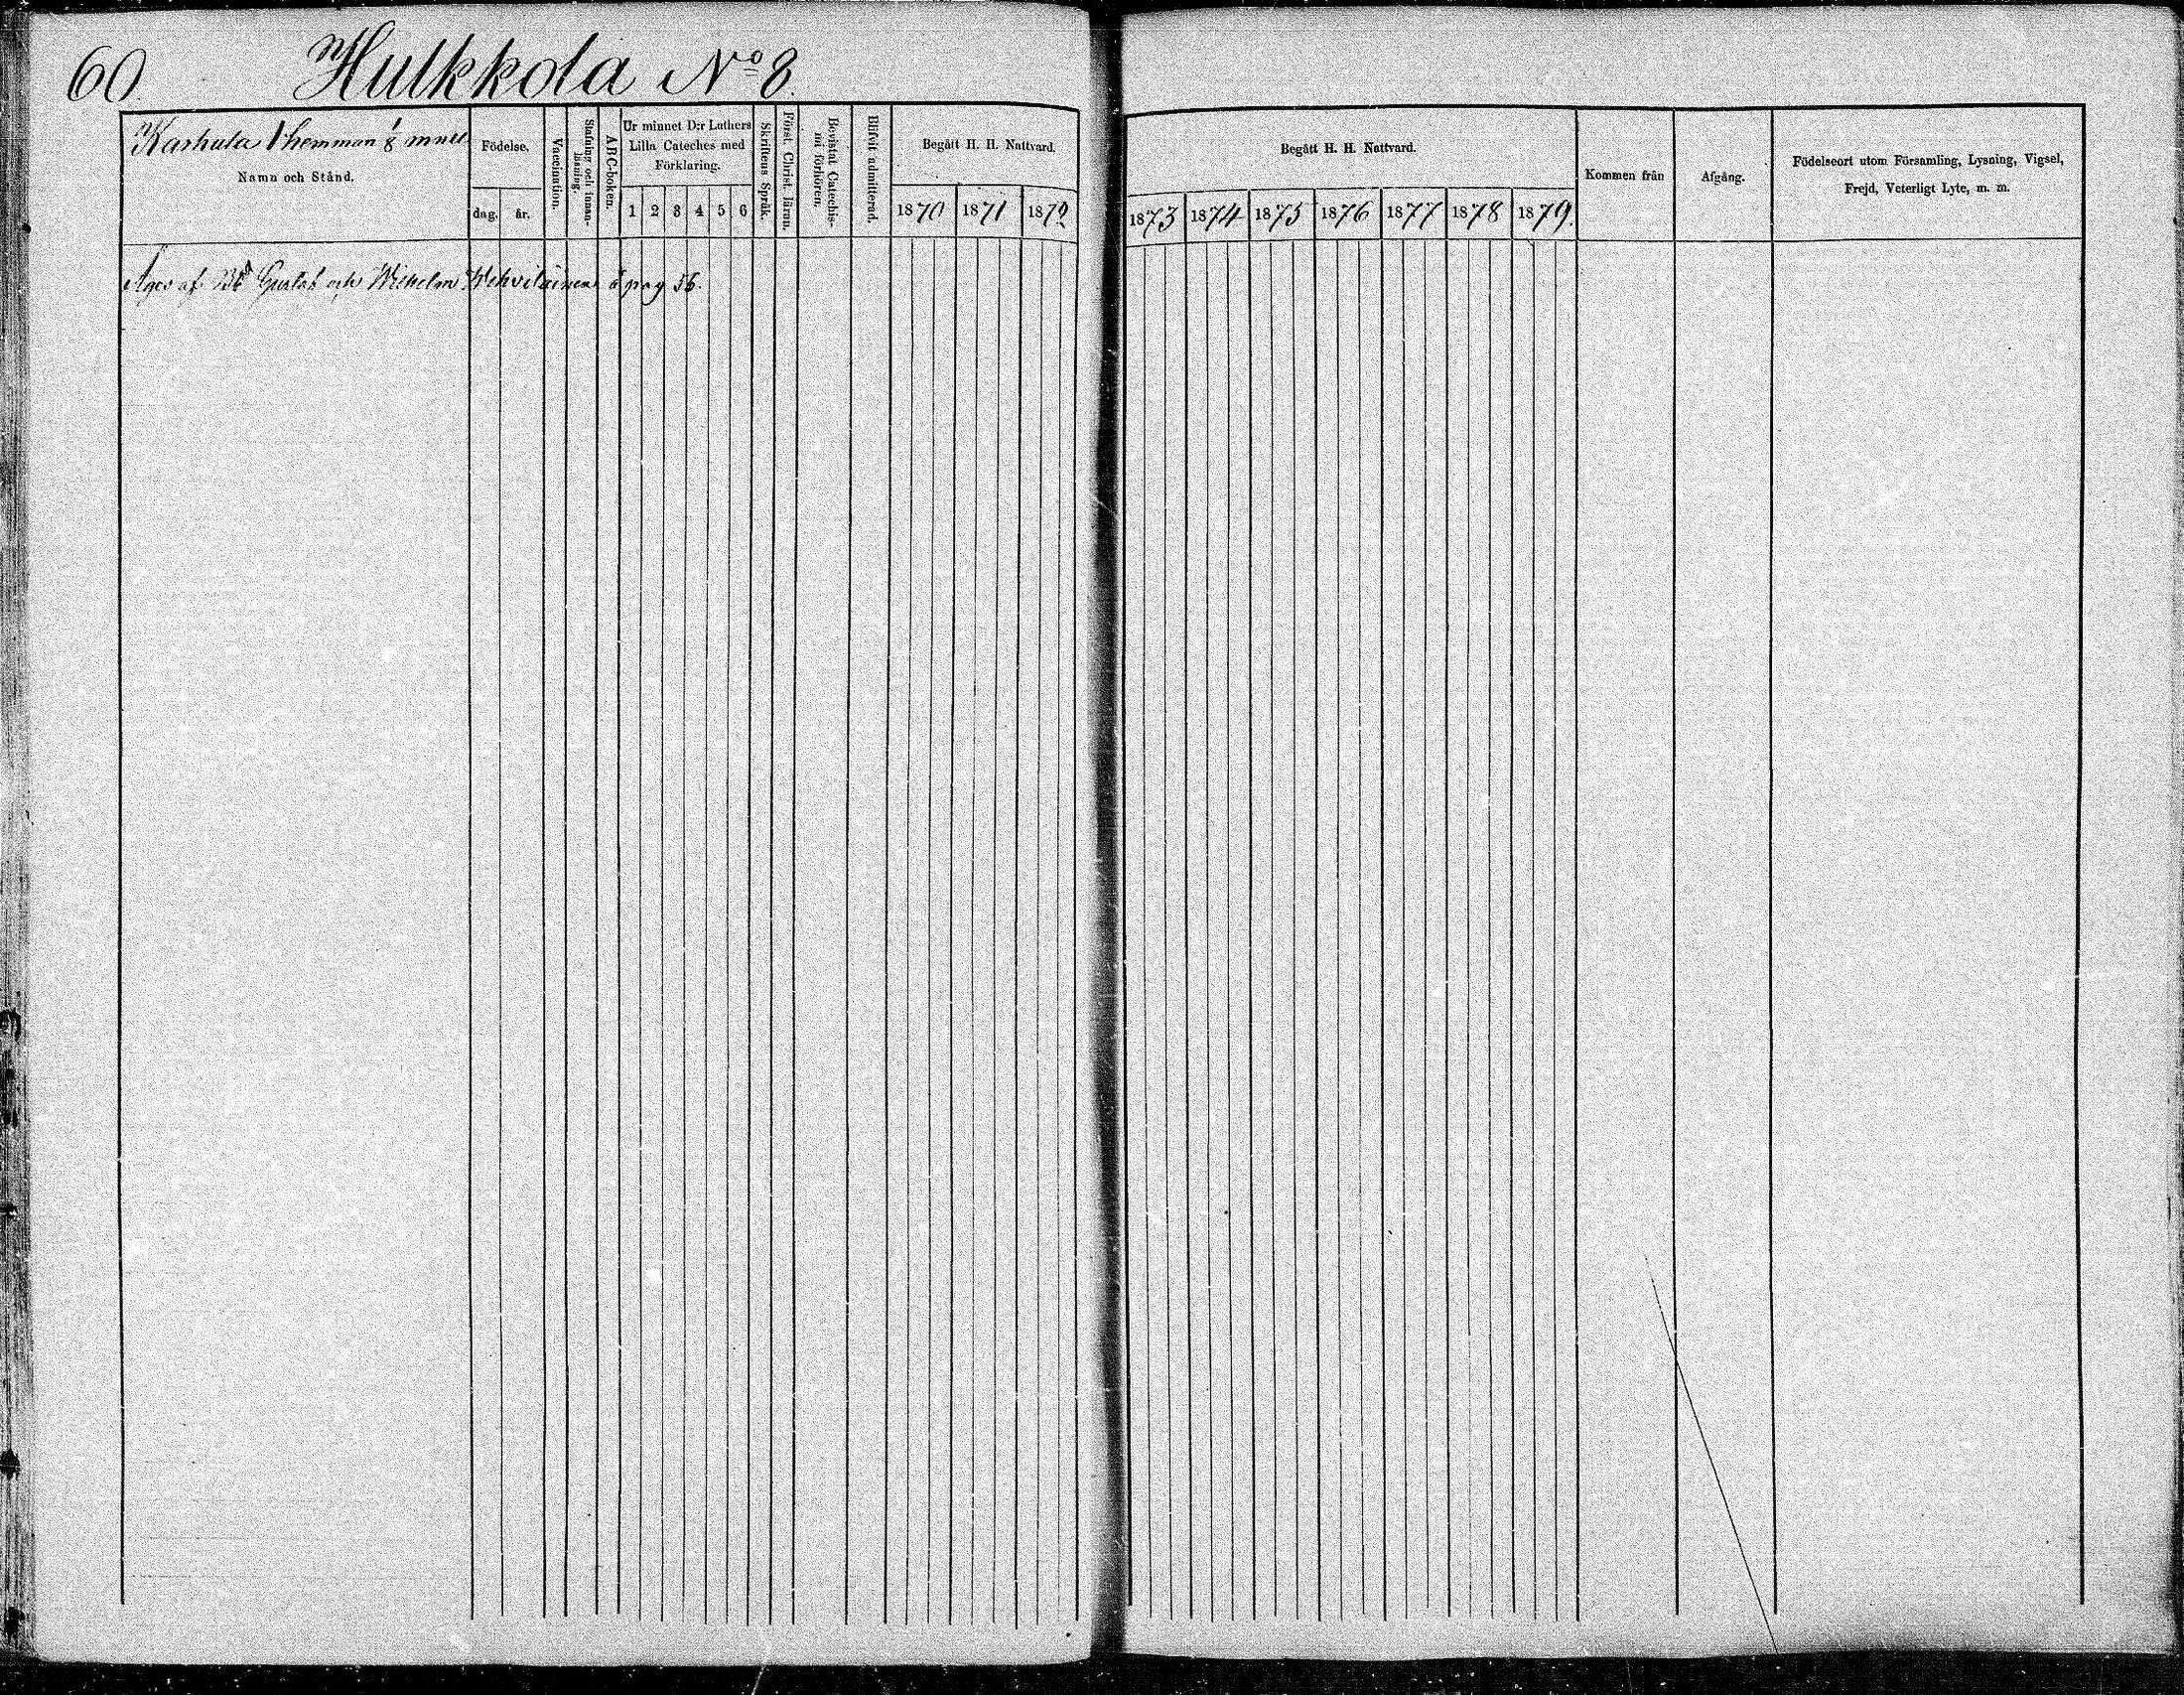 60.
Hulkkola No 8.
Karhula 1 hemman 1/8 mntl
Namn och Stånd.
Födelse,
dag. år.
Vaccination.
Stafning och innan-
läsning.
ABC-boken.
Ur minnet D:r Luthers
Lilla Cateches med
Förklaring.
1 2 3 4 5 6
Skriftens Språk.
Först. Christ. läran.
Bevistat Catechis-
mi förhören.
Blifvit admitterad.
Begått H. H. Nattvard.
1870 1871 1872
Begått H. H. Nattvard.
1873 1874 1875 1876 1877 1878 1879.
Kommen från
Afgång.
Födelseort utom Församling, Lysning, Vigsel,
Frejd, Veterligt Lyte, m. m.
Äges af Gustaf och Wilhelm Wehviläinen å pag 56.